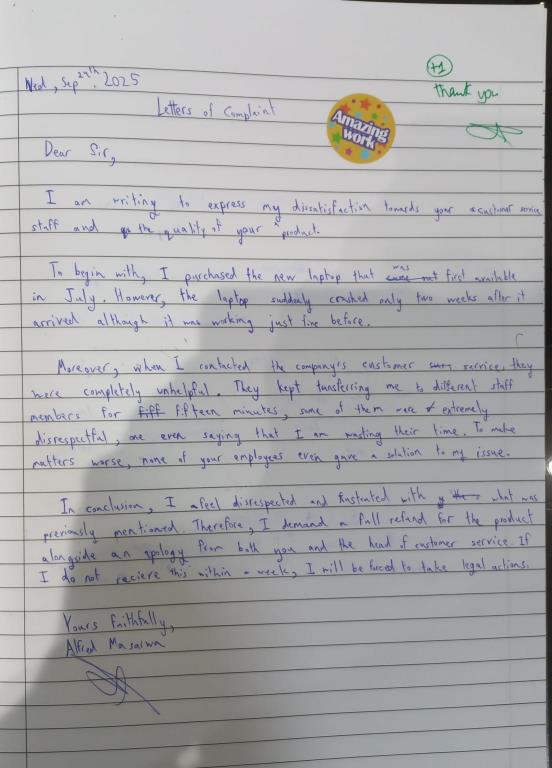 +1
thank you
Wed, Sep 24th. 2025
Letters of Complaint
Amazing
work
Dear Sir,
I am writing to express my dissatisfaction towards your customer service
staff and the quality of your product.
To begin with, I purchased the new laptop that was first available
in July. However, the laptop suddenly crashed only two weeks after it
arrived although it was working just fine before.
Moreover, when I contacted the company's customer service, they
were completely unhelpful. They kept transferring me to different staff
members for fifteen minutes, some of them were extremely
disrespectful, one even saying that I am wasting their time. To make
matters worse, none of your employees even gave a solution to my issue.
In conclusion, I feel disrespected and frustrated with what was
previously mentioned. Therefore, I demand a full refund for the product
alongside an apology from both you and the head of customer service. If
I do not recieve this within a week, I will be forced to take legal actions.
Yours faithfully,
Alfred Masalwa